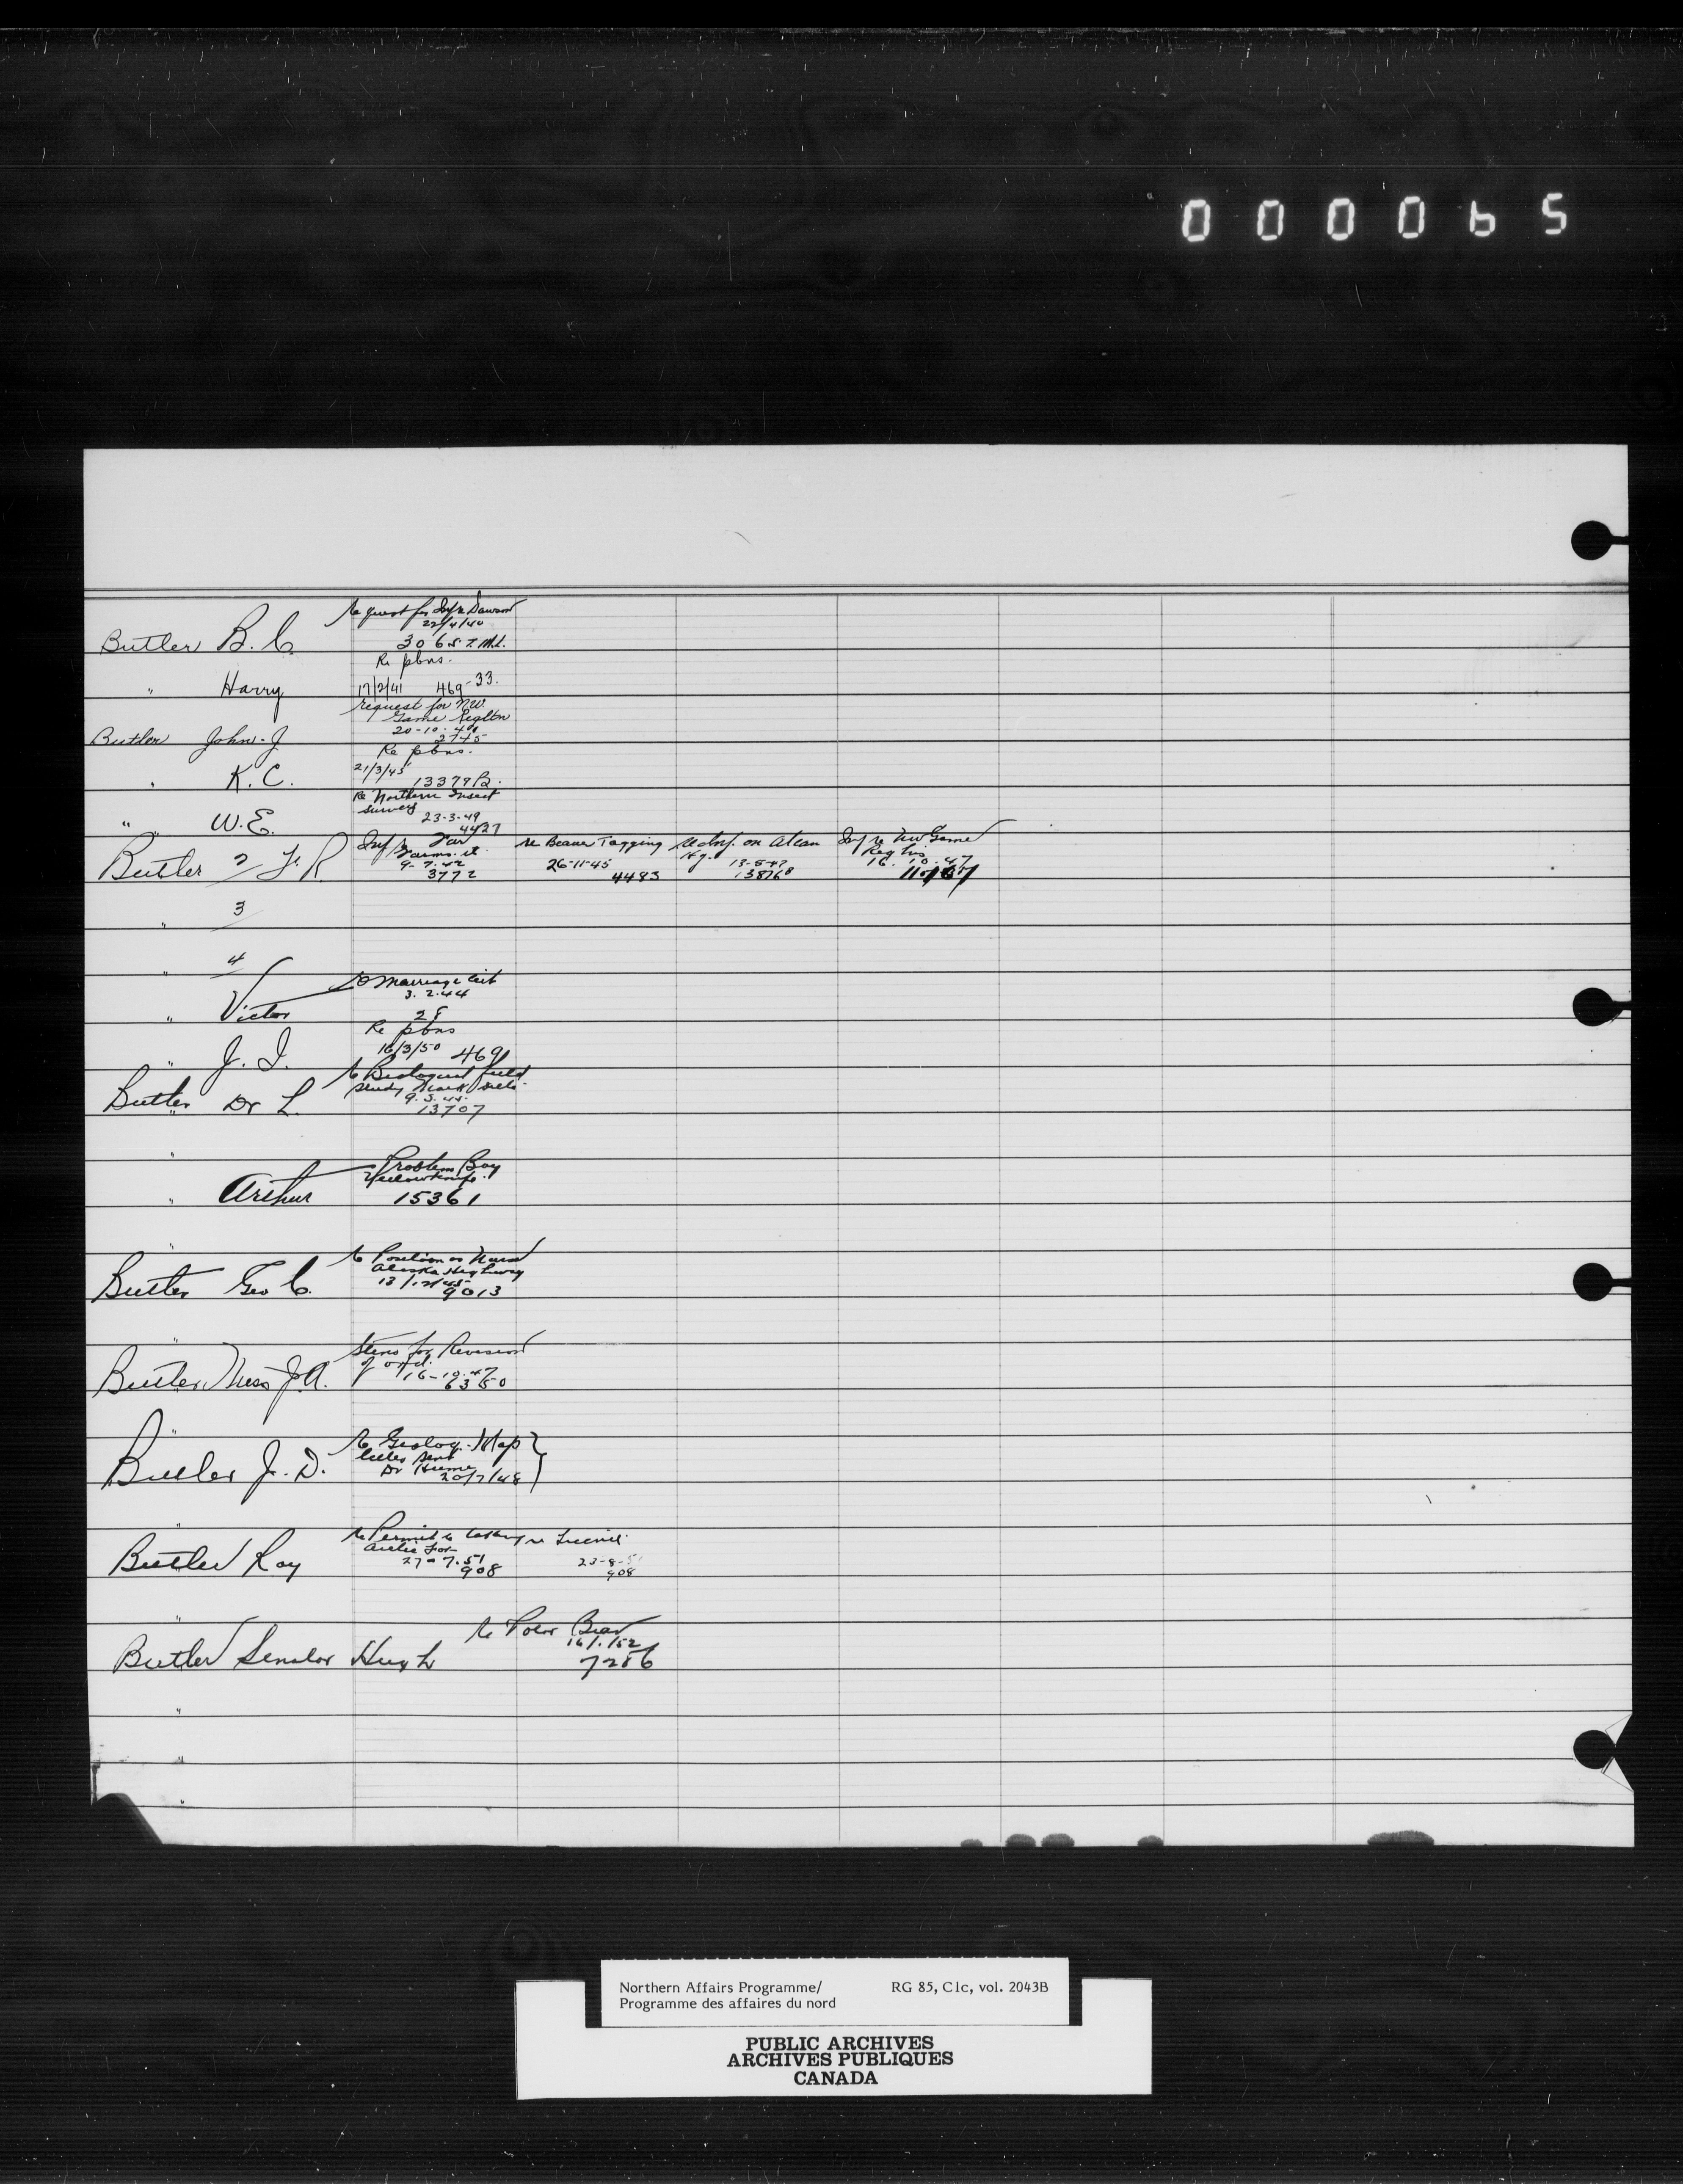 000065
Request for Inf re Dawson
22/4/40
Butler B. C. 3065-7. M.L.
Re pbns.
" Harry 17/2/41 469-33.
request for NW
Game Regltn
20-10-40
Butler John. J 2745
Re pbns.
21/3/45
" K. C. 13379 B.
Re Northern Insect
Survey
23-3-49
" W. E. 4427
Inf re Fur
Farms.
9-7-42
Butler 2 F. R 3772
re Beaver Tagging
26-11-45
4483
re Inf. on Alcan
Hy. 13-5-47
13876
Inf re NW Game
Reg
16. 10. 47
" 3
" 4
re Marriage Cert
3. 2. 44
" Victor 28
Re pbns
16/3/50
" J. I. 469
re Biological field
study
Butler Dr L. 13707
"
Problem Boy
Yellowknife.
" Arthur 15361
"
re Position as Nurse
Alaska Highway
13/12/45
Butler Geo C. 9013
"
Steno for Revision
of ord.
16-10-47
Butler Miss J. A. 6350
"
re Geolog. Map
letter sent
Dr Hume
Butler J. D. 20/7/48
"
re Permit re taking re License
Arctic Fox
27-7-51 23-8-51
Butler Roy 908 908
"
re Polar Bear
16/1/52
Butler Senator Hugh 7286
"
"
"
Northern Affairs Programme/ RG 85, C1c, vol. 2043B
Programme des affaires du nord
PUBLIC ARCHIVES
ARCHIVES PUBLIQUES
CANADA